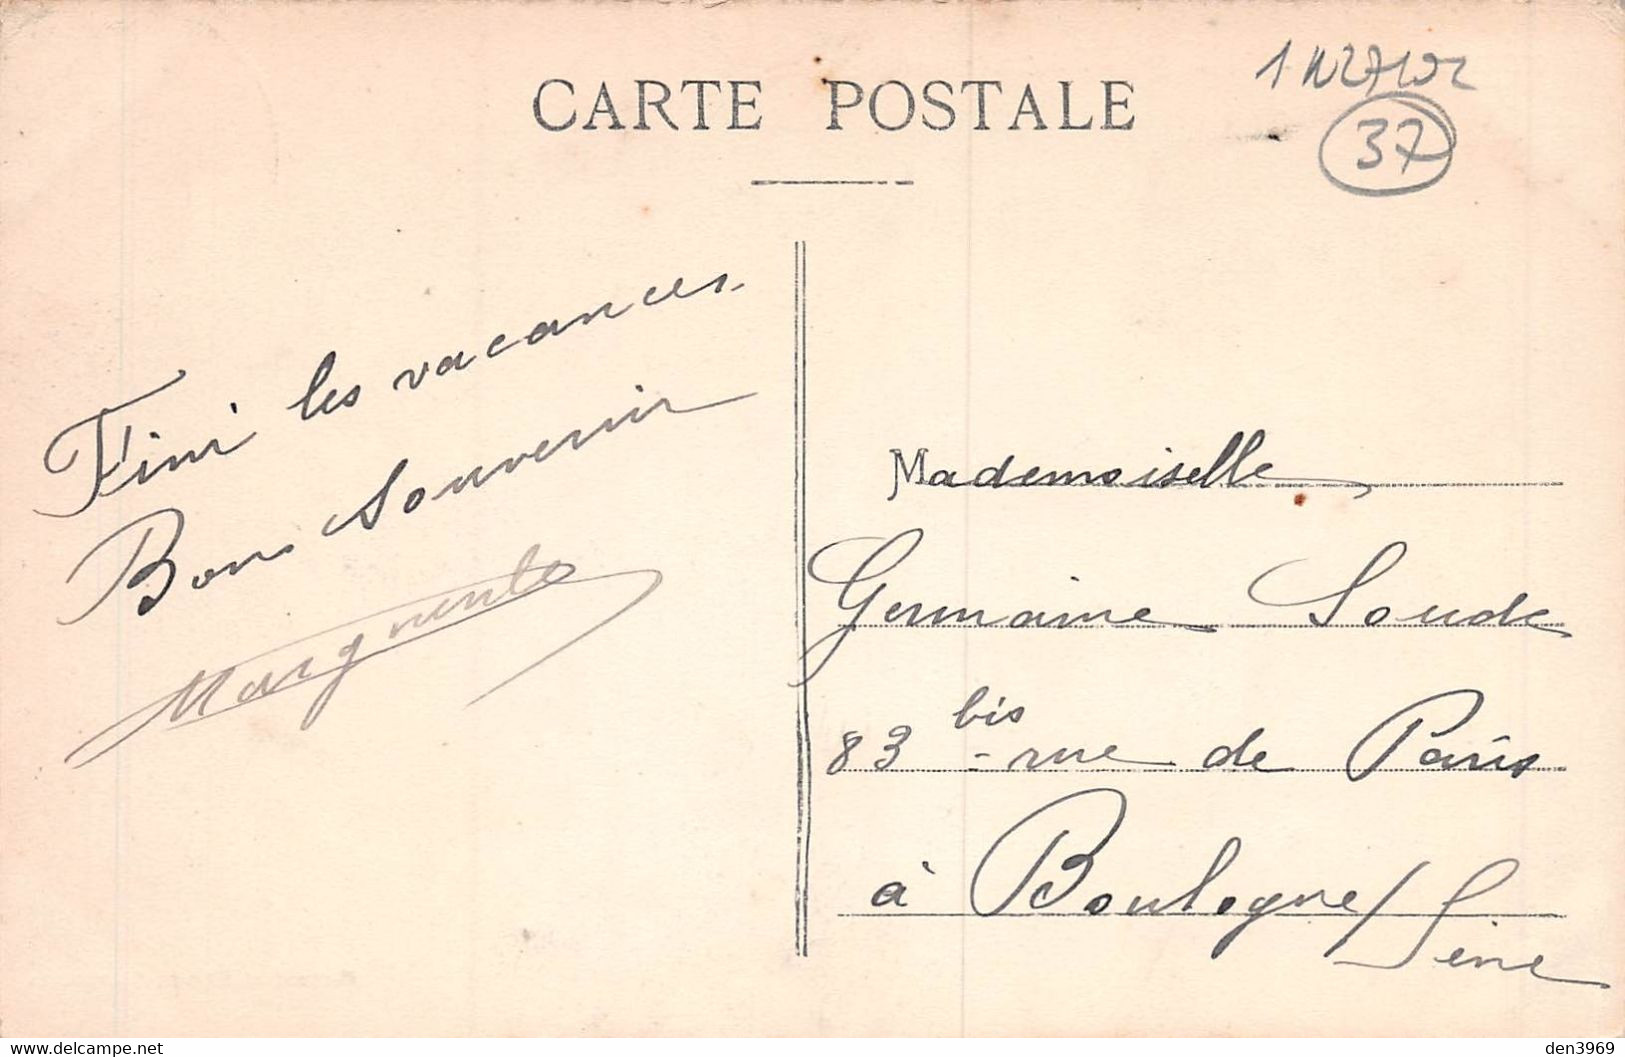 CARTE POSTALE
37
Fini les vacances
Bon Souvenir
Marguerite
Mademoiselle
Germaine Soude
83 bis - rue de Paris
à Boulogne / Seine
delcampe.net
den3969